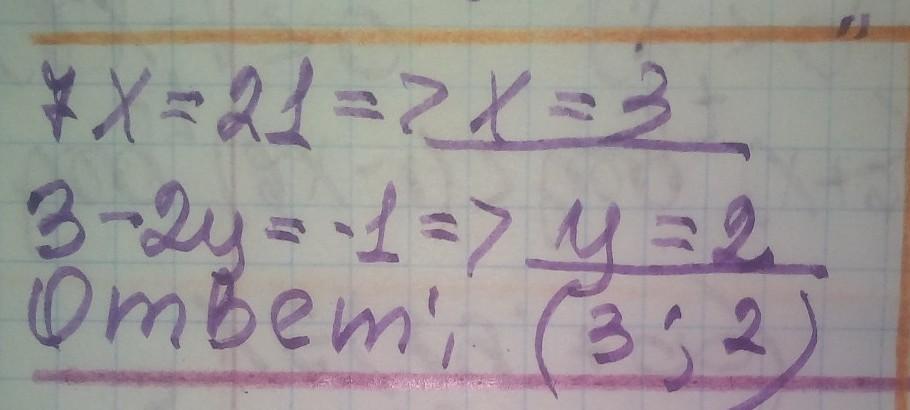 7x = 21 => x = 3
3 - 2y = -1 => y = 2
Ответ: (3; 2)